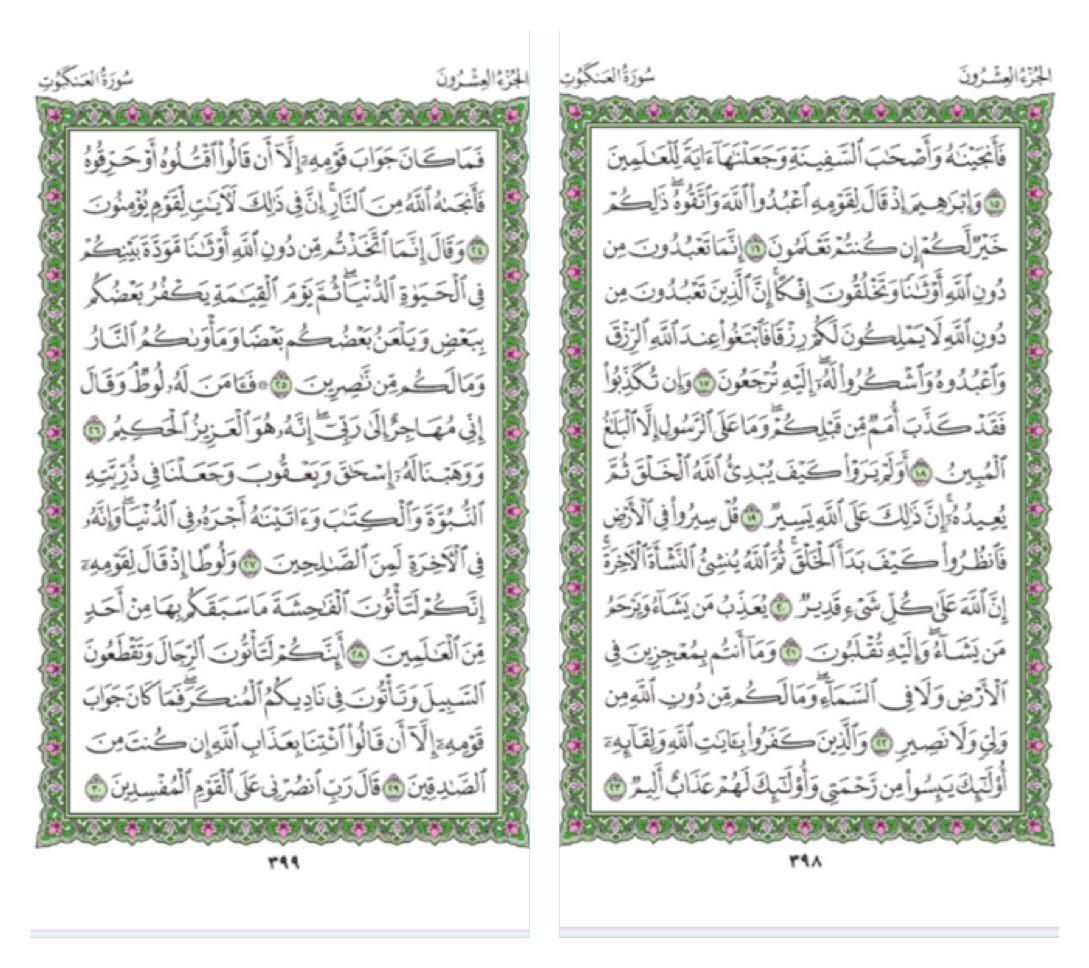 الجُزْءُ العِشْرُونَ
سُورَةُ العَنكَبُوتِ
فَأَنجَيْنَٰهُ وَأَصْحَٰبَ ٱلسَّفِينَةِ وَجَعَلْنَٰهَآ ءَايَةً لِّلْعَٰلَمِينَ
١٥ وَإِبْرَٰهِيمَ إِذْ قَالَ لِقَوْمِهِ ٱعْبُدُوا۟ ٱللَّهَ وَٱتَّقُوهُ ۖ ذَٰلِكُمْ
خَيْرٌ لَّكُمْ إِن كُنتُمْ تَعْلَمُونَ ١٦ إِنَّمَا تَعْبُدُونَ مِن
دُونِ ٱللَّهِ أَوْثَٰنًا وَتَخْلُقُونَ إِفْكًا ۚ إِنَّ ٱلَّذِينَ تَعْبُدُونَ مِن
دُونِ ٱللَّهِ لَا يَمْلِكُونَ لَكُمْ رِزْقًا فَٱبْتَغُوا۟ عِندَ ٱللَّهِ ٱلرِّزْقَ
وَٱعْبُدُوهُ وَٱشْكُرُوا۟ لَهُۥٓ ۖ إِلَيْهِ تُرْجَعُونَ ١٧ وَإِن تُكَذِّبُوا۟
فَقَدْ كَذَّبَ أُمَمٌ مِّن قَبْلِكُمْ ۖ وَمَا عَلَى ٱلرَّسُولِ إِلَّا ٱلْبَلَٰغُ
ٱلْمُبِينُ ١٨ أَوَلَمْ يَرَوْا۟ كَيْفَ يُبْدِئُ ٱللَّهُ ٱلْخَلْقَ ثُمَّ
يُعِيدُهُۥٓ ۚ إِنَّ ذَٰلِكَ عَلَى ٱللَّهِ يَسِيرٌ ١٩ قُلْ سِيرُوا۟ فِى ٱلْأَرْضِ
فَٱنظُرُوا۟ كَيْفَ بَدَأَ ٱلْخَلْقَ ۚ ثُمَّ ٱللَّهُ يُنشِئُ ٱلنَّشْأَةَ ٱلْءَاخِرَةَ ۚ
إِنَّ ٱللَّهَ عَلَىٰ كُلِّ شَىْءٍ قَدِيرٌ ٢٠ يُعَذِّبُ مَن يَشَآءُ وَيَرْحَمُ
مَن يَشَآءُ ۖ وَإِلَيْهِ تُقْلَبُونَ ٢١ وَمَآ أَنتُم بِمُعْجِزِينَ فِى
ٱلْأَرْضِ وَلَا فِى ٱلسَّمَآءِ ۖ وَمَا لَكُم مِّن دُونِ ٱللَّهِ مِن
وَلِىٍّ وَلَا نَصِيرٍ ٢٢ وَٱلَّذِينَ كَفَرُوا۟ بِـَٔايَٰتِ ٱللَّهِ وَلِقَآئِهِۦٓ
أُو۟لَٰٓئِكَ يَئِسُوا۟ مِن رَّحْمَتِى وَأُو۟لَٰٓئِكَ لَهُمْ عَذَابٌ أَلِيمٌ ٢٣
٣٩٨
الجُزْءُ العِشْرُونَ
سُورَةُ العَنكَبُوتِ
فَمَا كَانَ جَوَابَ قَوْمِهِۦٓ إِلَّآ أَن قَالُوا۟ ٱقْتُلُوهُ أَوْ حَرِّقُوهُ
فَأَنجَىٰهُ ٱللَّهُ مِنَ ٱلنَّارِ ۚ إِنَّ فِى ذَٰلِكَ لَءَايَٰتٍ لِّقَوْمٍ يُؤْمِنُونَ
٢٤ وَقَالَ إِنَّمَا ٱتَّخَذْتُم مِّن دُونِ ٱللَّهِ أَوْثَٰنًا مَّوَدَّةَ بَيْنِكُمْ
فِى ٱلْحَيَوٰةِ ٱلدُّنْيَا ۖ ثُمَّ يَوْمَ ٱلْقِيَٰمَةِ يَكْفُرُ بَعْضُكُم
بِبَعْضٍ وَيَلْعَنُ بَعْضُكُم بَعْضًا وَمَأْوَىٰكُمُ ٱلنَّارُ
وَمَا لَكُم مِّن نَّٰصِرِينَ ٢٥ ۞ فَـَٔامَنَ لَهُۥ لُوطٌ ۘ وَقَالَ
إِنِّى مُهَاجِرٌ إِلَىٰ رَبِّىٓ ۖ إِنَّهُۥ هُوَ ٱلْعَزِيزُ ٱلْحَكِيمُ ٢٦
وَوَهَبْنَا لَهُۥٓ إِسْحَٰقَ وَيَعْقُوبَ وَجَعَلْنَا فِى ذُرِّيَّتِهِ
ٱلنُّبُوَّةَ وَٱلْكِتَٰبَ وَءَاتَيْنَٰهُ أَجْرَهُۥ فِى ٱلدُّنْيَا ۖ وَإِنَّهُۥ
فِى ٱلْءَاخِرَةِ لَمِنَ ٱلصَّٰلِحِينَ ٢٧ وَلُوطًا إِذْ قَالَ لِقَوْمِهِۦٓ
إِنَّكُمْ لَتَأْتُونَ ٱلْفَٰحِشَةَ مَا سَبَقَكُم بِهَا مِنْ أَحَدٍ
مِّنَ ٱلْعَٰلَمِينَ ٢٨ أَئِنَّكُمْ لَتَأْتُونَ ٱلرِّجَالَ وَتَقْطَعُونَ
ٱلسَّبِيلَ وَتَأْتُونَ فِى نَادِيكُمُ ٱلْمُنكَرَ ۖ فَمَا كَانَ جَوَابَ
قَوْمِهِۦٓ إِلَّآ أَن قَالُوا۟ ٱئْتِنَا بِعَذَابِ ٱللَّهِ إِن كُنتَ مِنَ
ٱلصَّٰدِقِينَ ٢٩ قَالَ رَبِّ ٱنصُرْنِى عَلَى ٱلْقَوْمِ ٱلْمُفْسِدِينَ ٣٠
٣٩٩